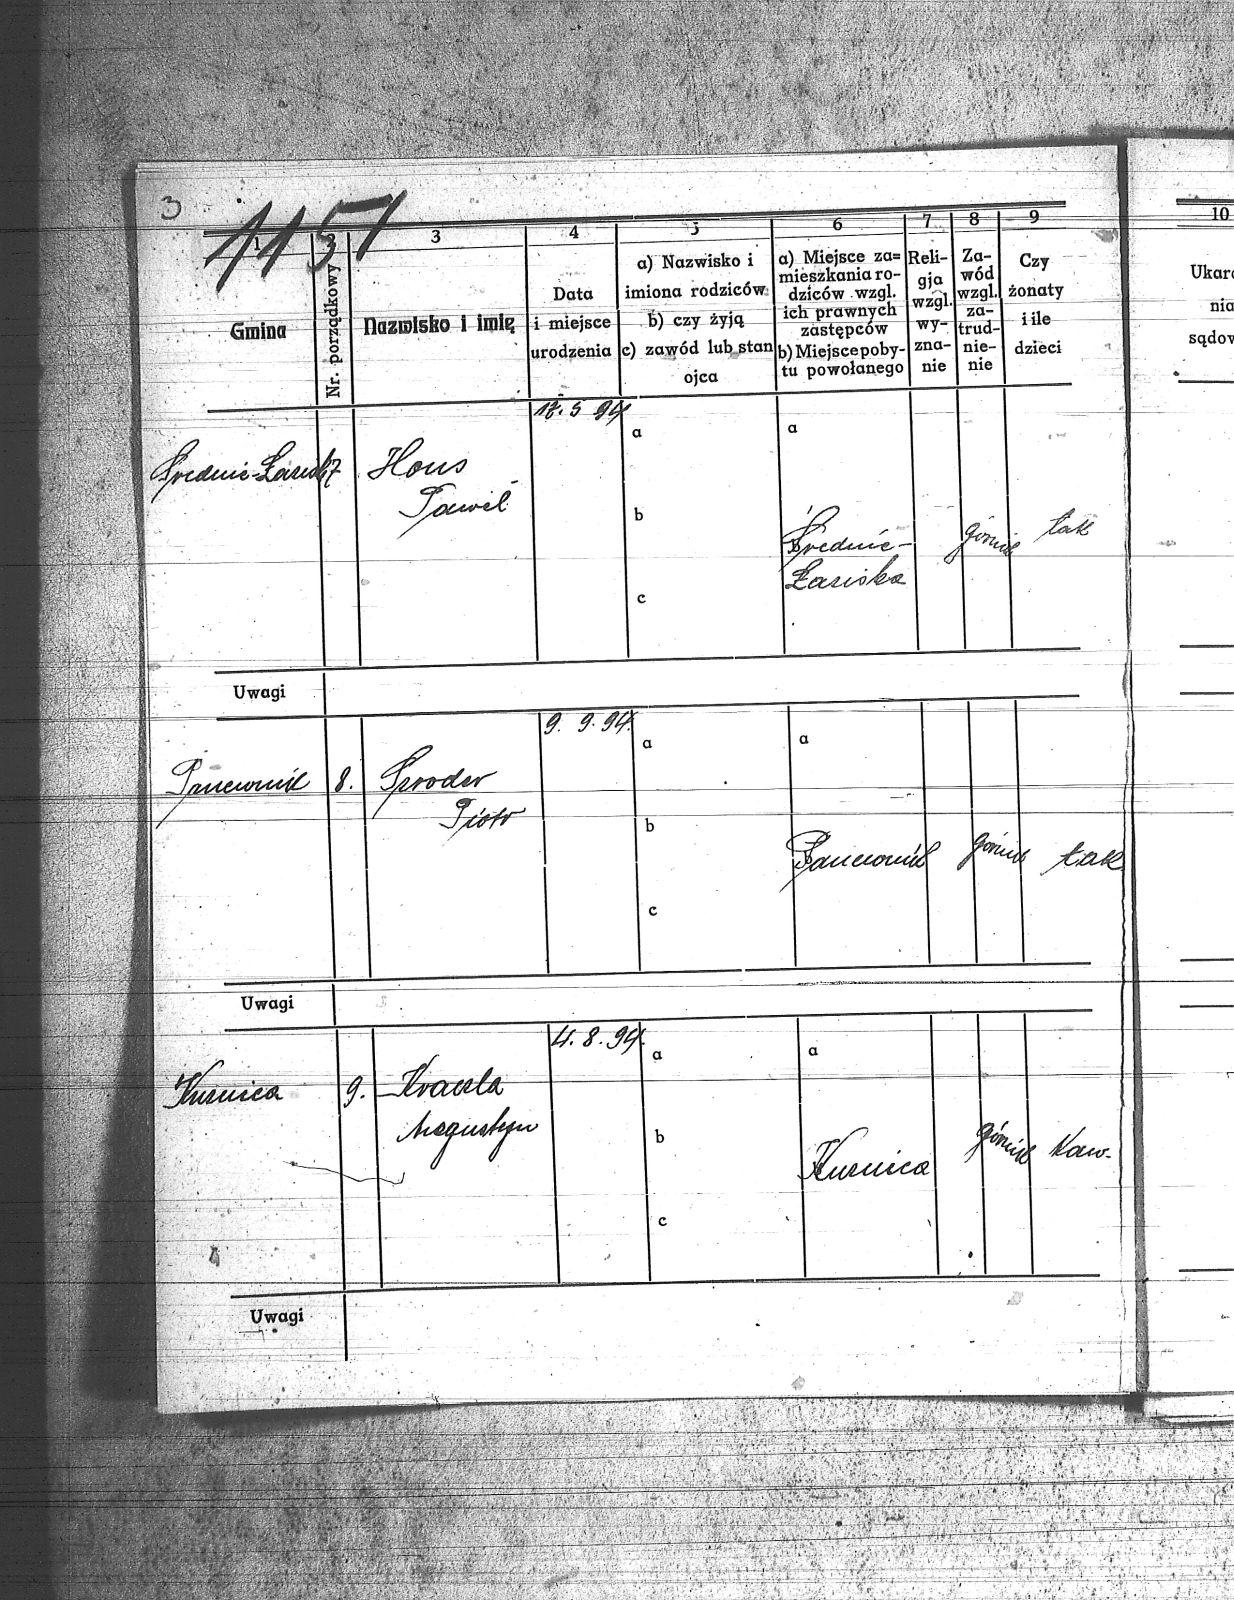 3
1157
1
2
3
4
5
6
7
8
9
10
Gmina
Nr. porządkowy
Nazwisko i imię
Data
i miejsce
urodzenia
a) Nazwisko i
imiona rodziców
b) czy żyją
c) zawód lub stan
ojca
a) Miejsce za=
mieszkania ro-
dziców wzgl.
ich prawnych
zastępców
b) Miejsce poby-
tu powołanego
Reli-
gja
wzgl.
wy-
zna-
nie
Za-
wód
wzgl.
za-
trud-
nie-
nie
Czy
żonaty
i ile
dzieci
Ukara
nia
sądow
Średnie-Łazisk
7
Hous
Paweł
12. 5 94
a
b
c
a
b
Średnie-
Łaziska
górnik
tak
Uwagi
Panewnik
8.
Szroder
Piotr
9. 9. 94.
a
b
c
a
b
Panewnik
górnik
tak
Uwagi
Kuźnica
9.
Kraczla
Augustyn
4. 8. 94.
a
b
c
a
Kuźnica
górnik
kaw.
Uwagi